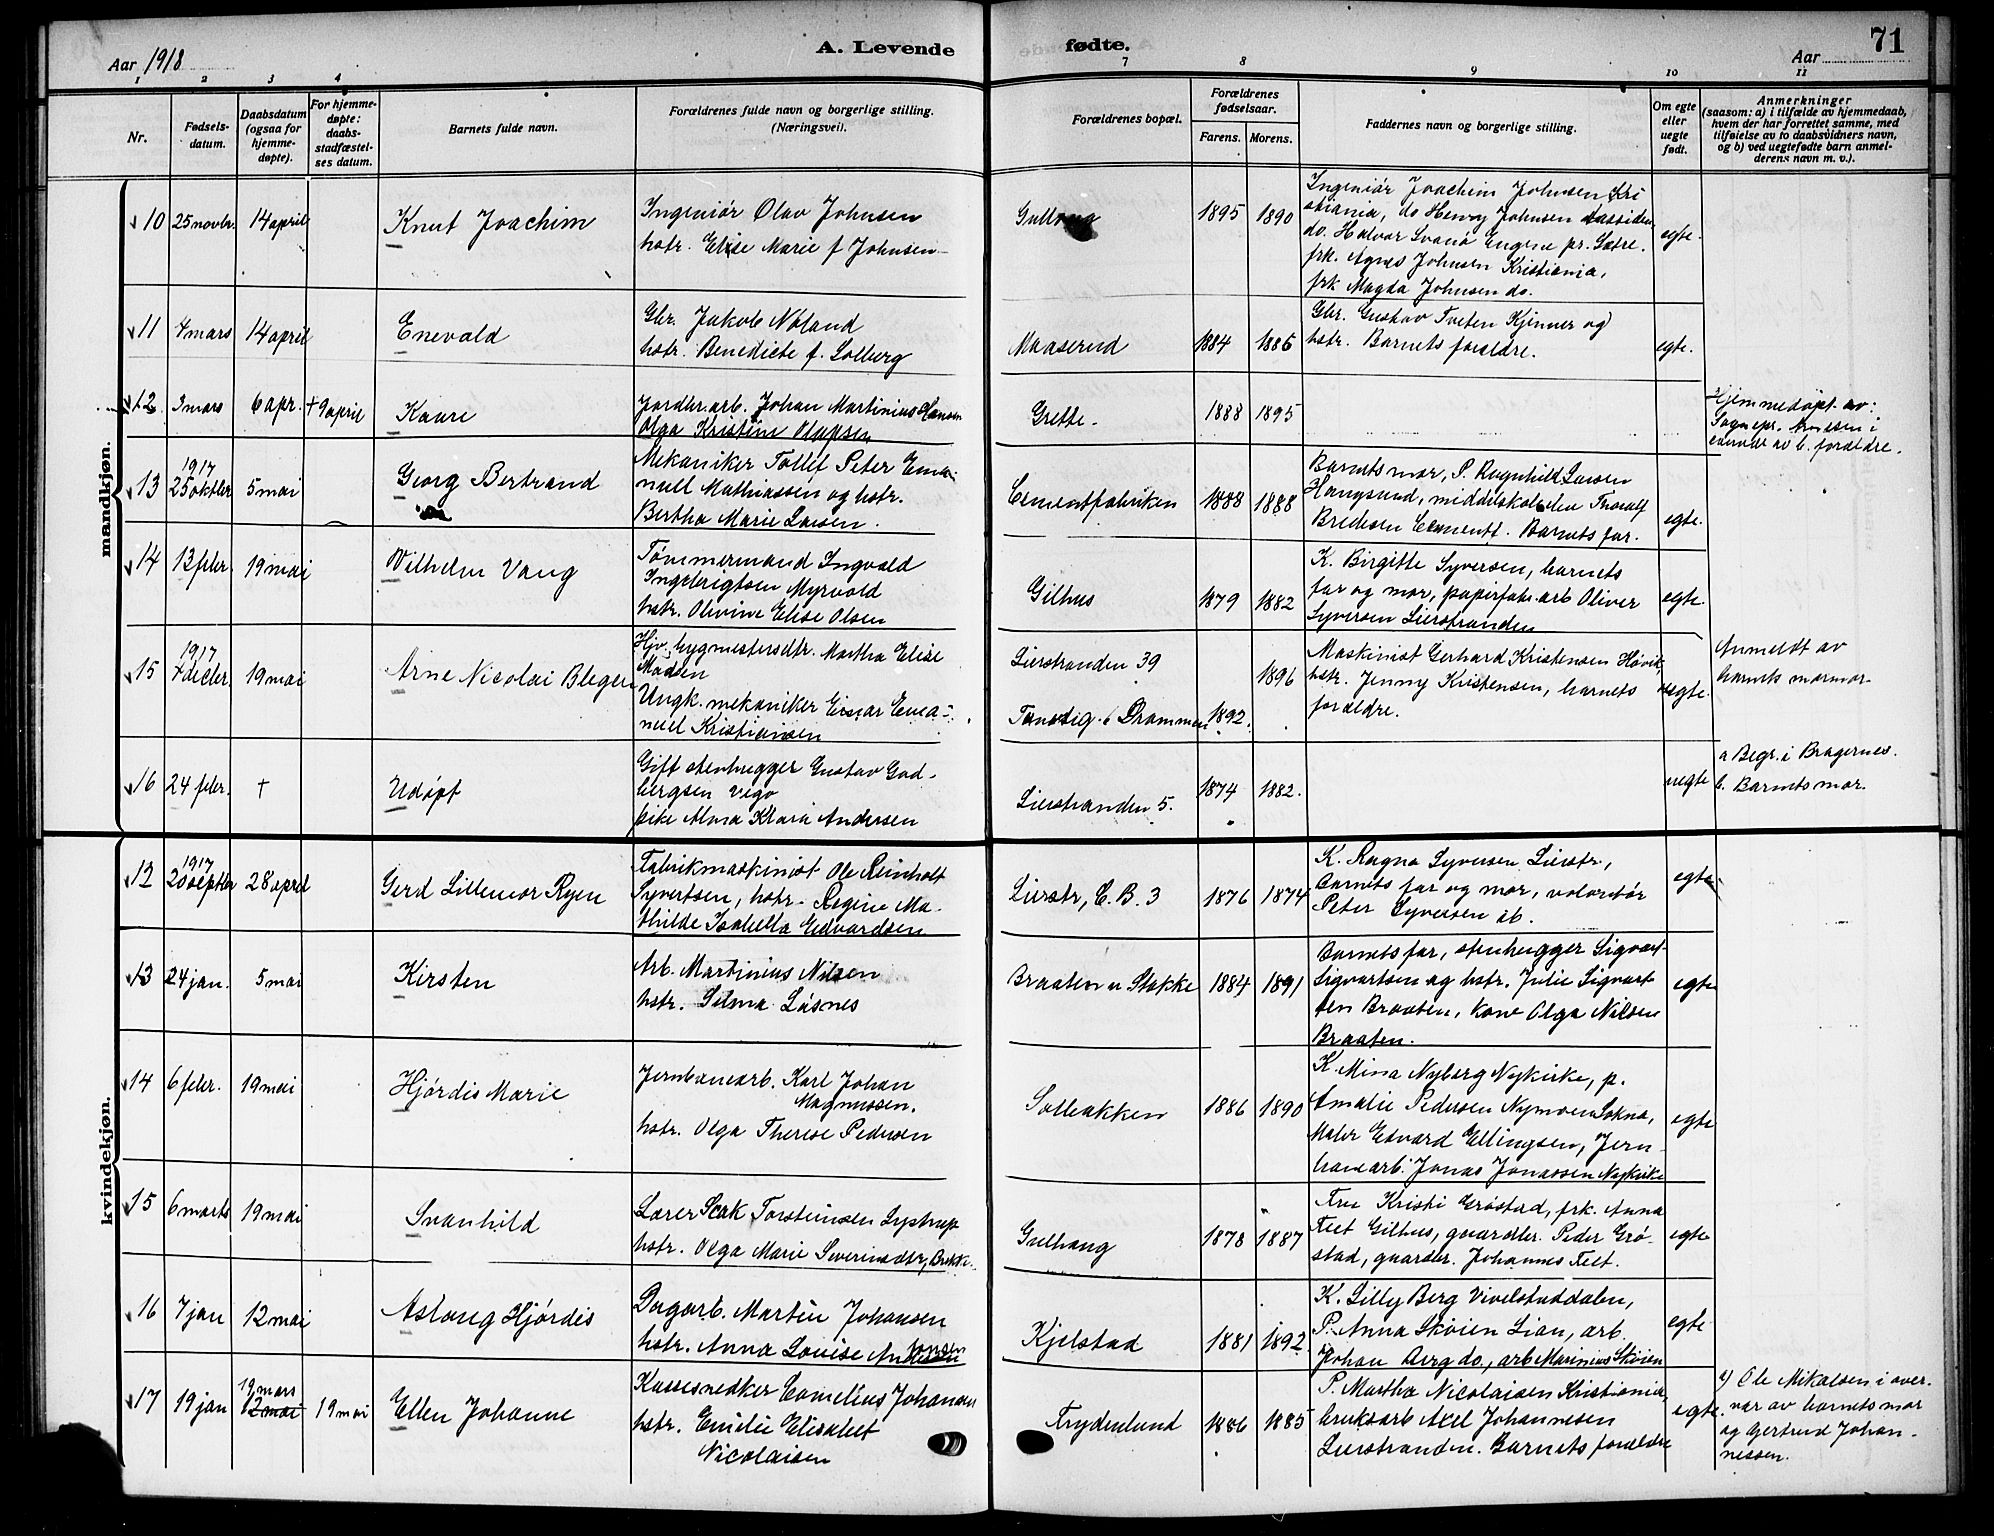 Aar 1918
A. Levende
fødte.
Aar
71
1 2 3 4 7 8 9 10 11
Nr.
Fødsels-
datum.
Daabsdatum
(ogsaa for
hjemme-
døpte).
For hjemme-
døpte:
daabs-
stadfæstel-
ses datum.
Barnets fulde navn.
Forældrenes fulde navn og borgerlige stilling.
(Næringsvei).
Forældrenes bopæl.
Forældrenes
fødselsaar.
Farens. Morens.
Faddernes navn og borgerlige stilling.
Om egte
eller
uegte
født.
Anmerkninger
(saasom: a) i tilfælde av hjemmedaab,
hvem der har forrettet samme, med
tilføielse av to daabsvidners navn,
og b) ved uegtefødte barn anmel-
derens navn m. v.).
mandkjøn.
10 25 novbr. 14 april
Knut Joachim
Ingeniør Olav Johnsen
hstr. Elise Marie f Johnsen
1895 1890
Ingeniør Joachim Johnsen Kri
stiania, do Henry Johnsen
do. Halvor Svanö Engene pr. Sætre.
frk. Agnes Johnsen Kristiania,
frk Magda Johnsen do.
egte.
11 4 mars 14 april
Enevald
Gbr. Jakob Nøland
hstr. Benedicte f. Solberg
Maaserud
1884 1886
Gbr. Gustav Tveten Kjinner og
hstr. Barnets forældre.
egte.
12 3 mars 6 apr. + 9 april
Kaare
Jorderarb. Johan Martinius Hansen
Olga Kristine Olafsen
Grette.
1888 1895
Hjemmedøpt av:
Sognepr. i
av b. forældre.
13 1917
25 oktbr 5 mai
Georg Bertrand
Mekaniker Tollef Peter Ema-
nuel Mathiassen og hstr.
Bertha Marie Larsen.
Cementfabriken
1888 1888
Barnets mor, P. Ragnhild Larsen
Haugsund, middelskole Thoralf
Bredesen Cementf. Barnets far.
egte.
14 13 febr 19 mai
Wilhelm Vang
Tømmermand Ingvald
Ingebrigtsen Myrvold
hstr. Olevine Elise Olsen
Gilhus
1879 1882
K. Birgitte Syversen, barnets
far og mor, papirfabr. arb Oliver
Syversen Lierstranden
egte.
15 1917
7 decbr. 19 mai
Arne Nicolai Bleger
Hjv. bygmestersdtr. Martha Elise
Madsen
Ungk. mekaniker Einar Ema-
nuel Kristiansen
Lierstranden 39
Drammen
1896
1892.
Maskinist Gerhard Kristensen Høvik,
hstr. Jenny Kristensen, barnets
forældre.
uegte.
Anmeldt av
barnets mormor.
16 24 febr. +
Udøpt
Gift stenhugger Gustav God-
bergsen Vego
pike Alma Klara Andersen
Lierstranden 5.
1874 1882.
uegte
a Begr. i Bragernes.
b. Barnets mor.
kvindekjøn.
12 1917
20 septbr 28 april
Gerd Lillemor Ryen
Fabrikmaskinist Ole Reinholt
Syvertsen, hstr. Regine Ma-
thilde Isabella Edvardsen
Lierstr, C. B. 3
1876 1874
K. Ragna Syversen Lierstr,
barnets far og mor, volontør
Peter Syversen ib.
egte
13 24 jan. 5 mai
Kirsten
Arb. Martinius Nilsen
hstr. Selma Lisnes
Braaten u Stokke
1884 1891
Barnets far, stenhugger Sigvart
Sigvartsen og hstr. Julie Sigvart
sen Braaten, kone Olga Nilsen
Braaten.
egte
14 6 febr. 19 mai
Hjørdis Marie
Jernbanearb. Karl Johan
Magnussen.
hstr. Olga Therese Pedersen
Solbakken
1886 1890
K. Mina Nyberg Nykirke, p.
Amalie Pedersen Nymoen Sokna,
Maler Edvard Ellingsen, Jern
banearb. Jonas Jonassen Nykirke
egte
15 6 marts 19 mai
Svanhild
Lærer Isak Torsteinsen Lystrup
hstr. Olga Marie Severinsdtr, Brekke.
Gulhaug
1878 1887
Fru Kristi Grøstad, frk. Anna
Feet Gilhus, gaardbr. Peder Grø-
stad, gaardbr. Johannes Feet.
egte
16 7 jan 12 mai
Aslaug Hjørdis
Dagarb. Martin Johansen
hstr. Anna Lovise
Jonsen
Kjelstad
1881 1892
K. Lilly Berg Vivelstaddalen,
P. Anna Skøien Lian, arb.
Johan Berg do., arb Marinius Skøien
egte
17 19 jan 19 mars
12 mai 19 mai
Ellen Johanne
Kassesnedker Cornelius Johansen
hstr. Emilie Elisabet
Nicolaisen
Frydenlund
1886 1885
P. Martha Nicolaisen Kristiania,
bruksarb Axel Johannesen
Lierstranden. Barnets forældre
egte.
Ole Mikalsen i over-
vær av barnets mor
og Gertrud Johan-
nessen.